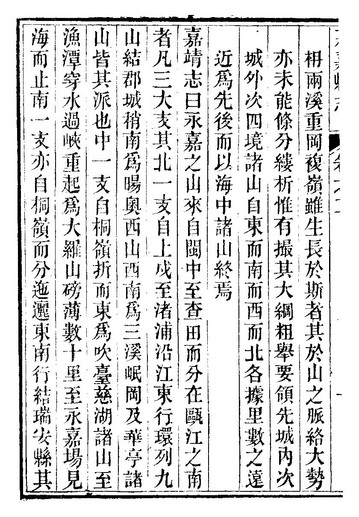 枏兩溪重岡複嶺雖生長於斯者其於山之脈絡大勢
亦未能條分縷析惟有撮其大綱粗舉要領先城內次
城外次四境諸山自東而南而西而北各據里數之遠
近爲先後而以海中諸山終焉
嘉靖志曰永嘉之山來自閩中至查田而分在甌江之南
者凡三大支其北一支自上戍至渚浦沿江東行環列九
山結郡城稍南爲暘奥西山西南爲三溪岷岡及華亭諸
山皆其派也中一支自桐嶺折而東爲吹臺慈湖諸山至
漁潭穿水過峽重起爲大羅山磅薄數十里至永嘉場見
海而止南一支亦自桐嶺而分迤邐東南行結瑞安縣其